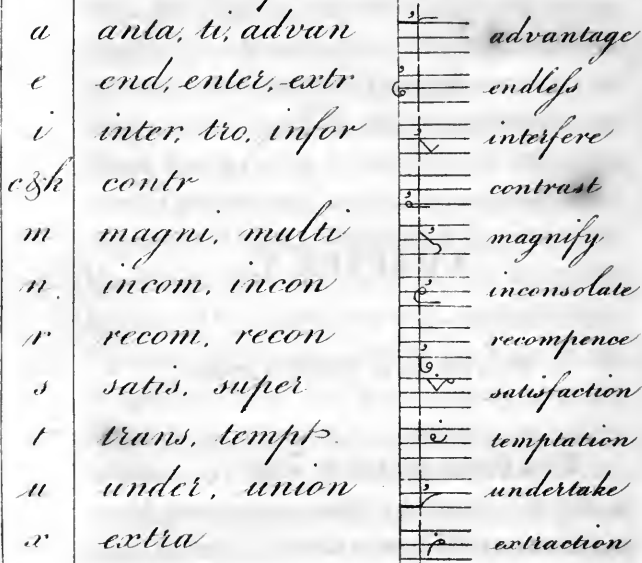 a anta, ti, advan advantage
e end, enter, extr endless
i inter, tro, infor interfere
c&k contr contrast
m magni, multi magnify
n incom, incon inconsolate
r recom, recon recompence
s satis, super satisfaction
t trans, tempt temptation
u under, union undertake
x extra extraction